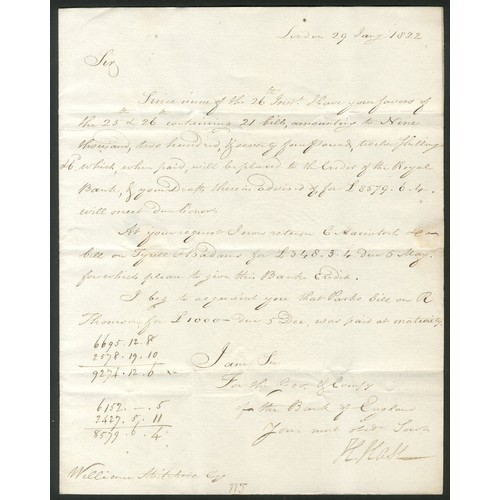 London 29 Jany 1822
Sir,
Since mine of the 26th Inst. I have your favors of
the 25th & 26th containing 21 bills, amounting to Nine
thousand, two hundred, & seventy four pounds, twelve shillings
& 6 which, when paid, will be placed to the Credit of the Royal
Bank, & your Drafts therein advised of for £8579.6.4.
will meet due honor.
At your request I now return C. Macintosh & Co
bill on Tyrell & Badams for £348.3.4 Due 5 May.
for which please to give this Bank Credit.
I beg to acquaint you that bill on R
Thomson for £1000 - Due 5 Dec, was paid at maturity.
6695.12.8
2578.19.10
9274.12.6
I am Sir
For the Govr. & Compy
of the Bank of England
Your most Obedt Servt
6152.-.5
2427.5.11
8579.6.4
William Esq